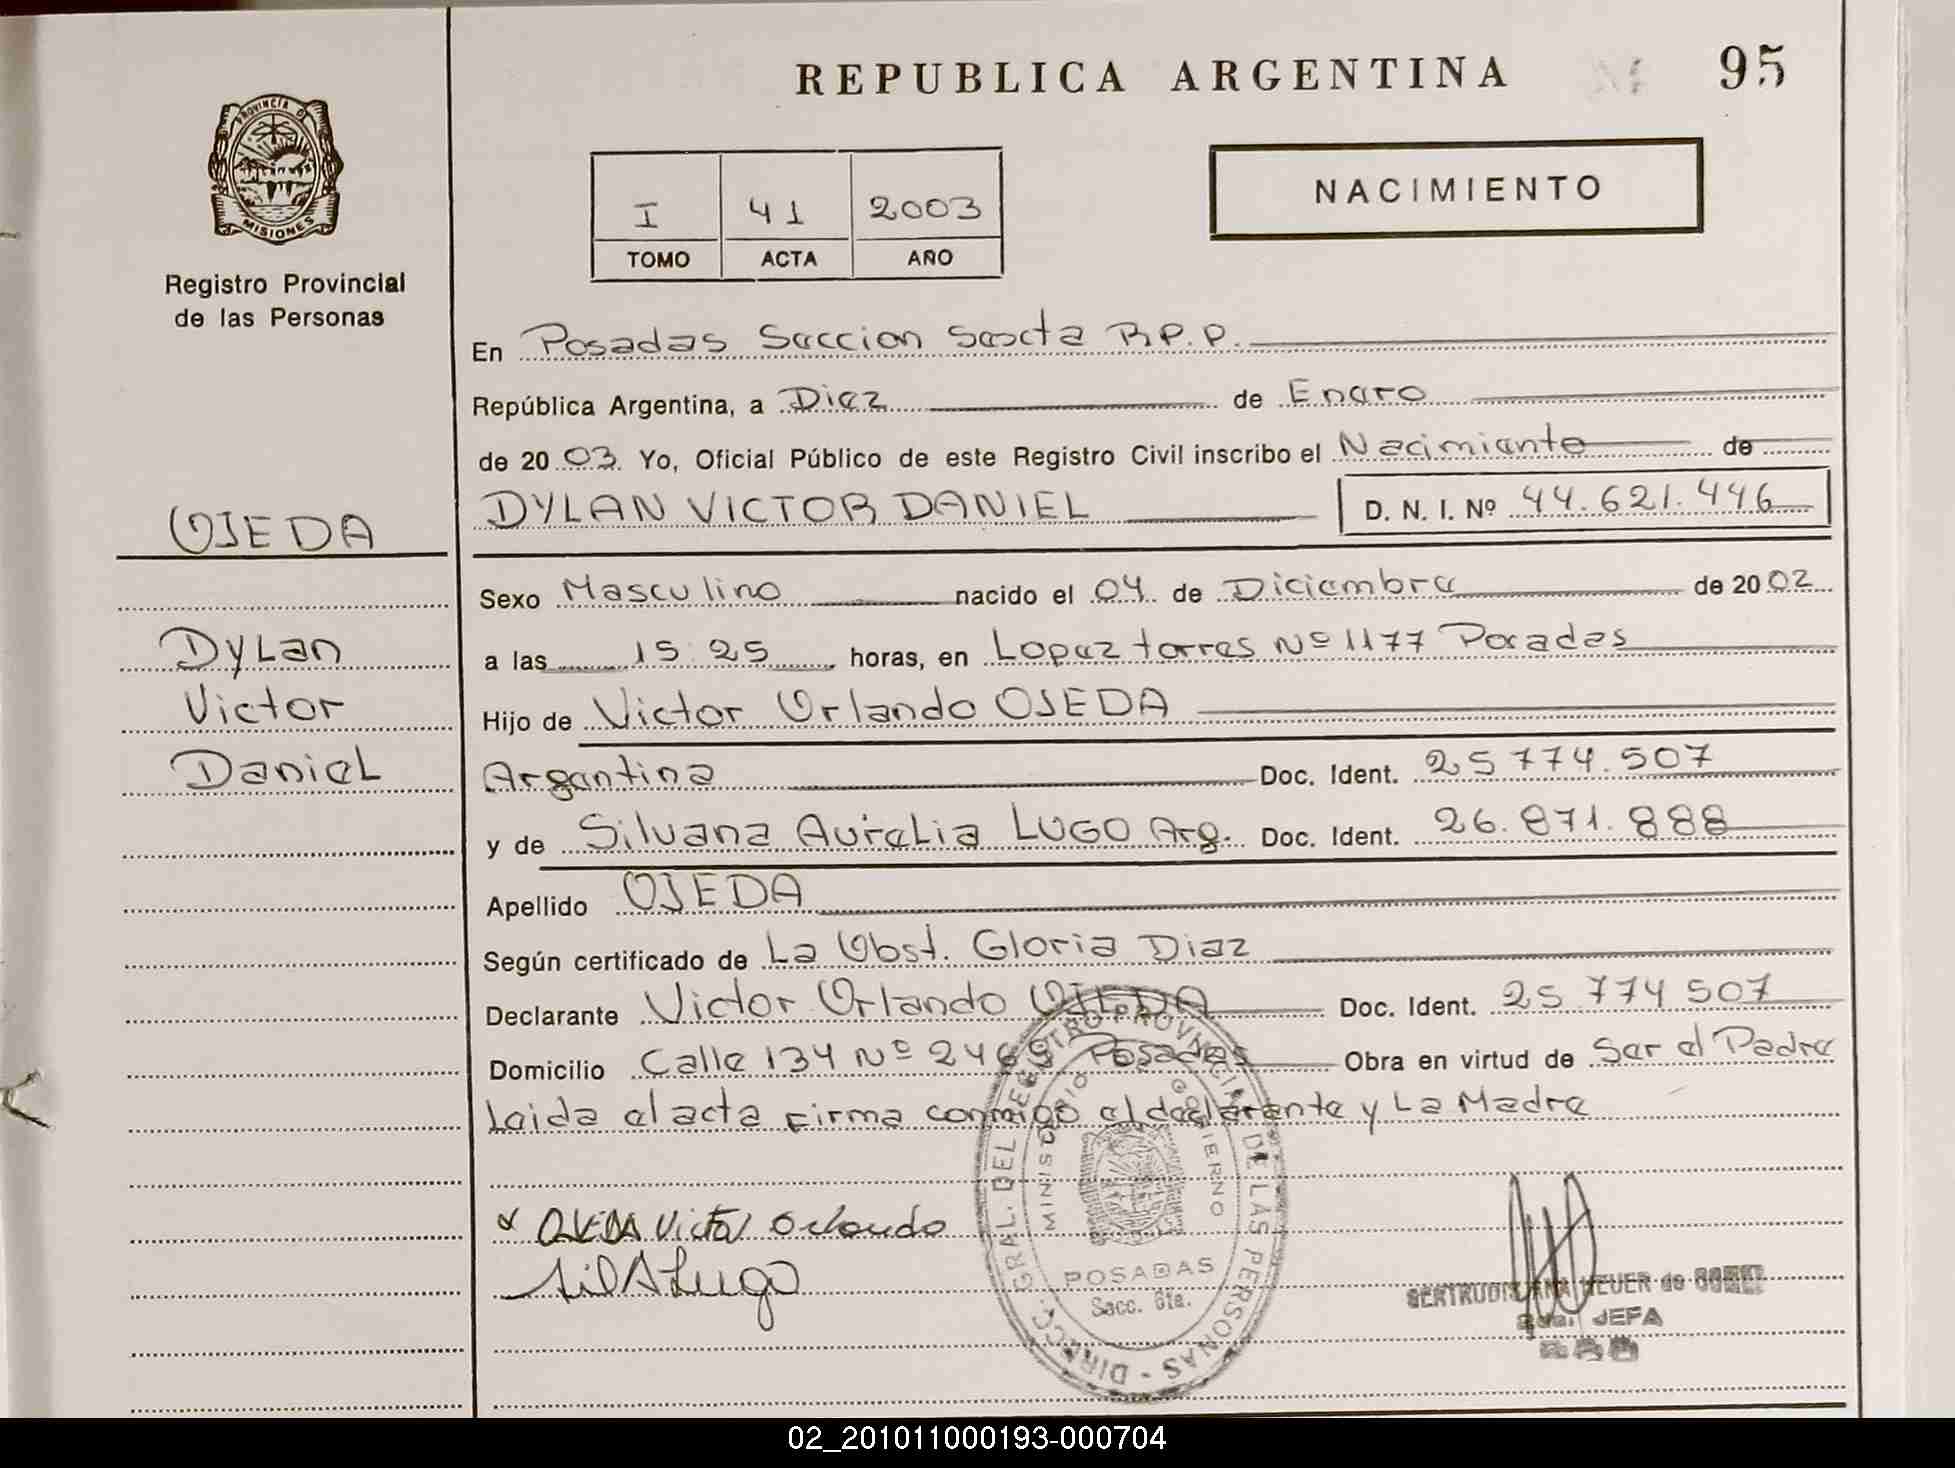 REPUBLICA ARGENTINA
95
PROVINCIA DE
MISIONES
Registro Provincial
de las Personas
I 41 2003
TOMO ACTA AÑO
NACIMIENTO
En Posadas Seccion Sexta R.P.P.
República Argentina, a Diez de Enero
de 2003 Yo, Oficial Público de este Registro Civil inscribo el Nacimiento de
DYLAN VICTOR DANIEL D. N. I. Nº 44.621.446
OJEDA
Dylan
Victor
Daniel
Sexo Masculino nacido el 04 de Diciembre de 2002
a las 15:25 horas, en Lopez torres Nº 1177 Posadas
Hijo de Victor Orlando OJEDA
Argentina Doc. Ident. 25.774.507
y de Silvana Aurelia LUGO Arg. Doc. Ident. 26.871.888
Apellido OJEDA
Según certificado de La Obst. Gloria Diaz
Declarante Victor Orlando OJEDA Doc. Ident. 25.774.507
Domicilio Calle 134 Nº 2469 Posadas Obra en virtud de Ser el Padre
Leida el acta firma conmigo el declarante y La Madre
OJEDA Victor Orlando
Sil A Lugo
DIRECC. GRAL. DEL REGISTRO PROVINCIAL DE LAS PERSONAS
MINISTERIO GOBIERNO
POSADAS
Secc. 6ta.
GERTRUDIS ANA MEUER de
JEFA
02_201011000193-000704